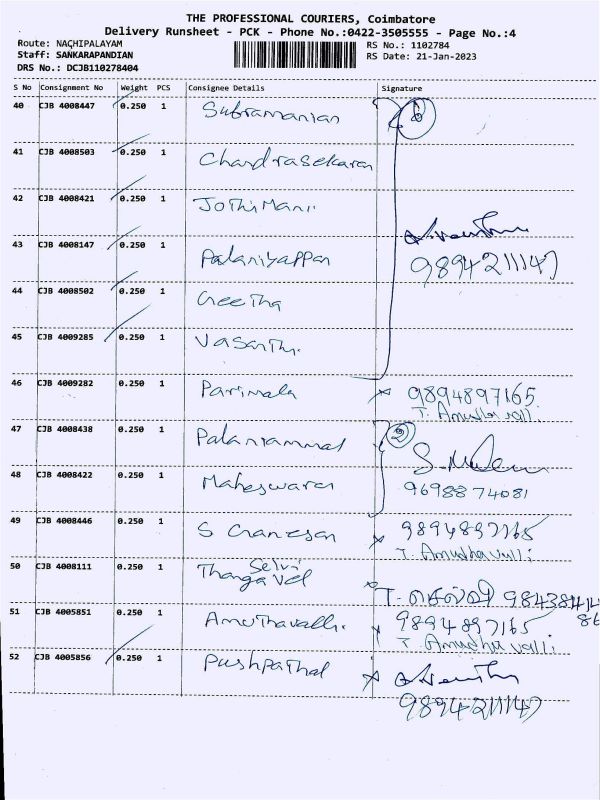 THE PROFESSIONAL COURIERS, Coimbatore
Delivery Runsheet - PCK - Phone No.:0422-3505555 - Page No.:4
Route: NACHIPALAYAM
RS No.: 1102784
Staff: SANKARAPANDIAN
RS Date: 21-Jan-2023
DRS No.: DCJB110278404
S No Consignment No Weight PCS Consignee Details Signature
40 CJB 4008447 0.250 1 Subramanian 6
41 CJB 4008503 0.250 1 Chandrasekaran
42 CJB 4008421 0.250 1 Jothimani
43 CJB 4008147 0.250 1 Palaniyappan 9894211147
44 CJB 4008502 0.250 1 Geetha
45 CJB 4009285 0.250 1 Vasanthi
46 CJB 4009282 0.250 1 Parimala 9894897165
T. Amudhavalli
47 CJB 4008438 0.250 1 Palaniammal 2
48 CJB 4008422 0.250 1 Maheswaran 9698874081
49 CJB 4008446 0.250 1 S Ganesan 9894897165
T. Amudhavalli
50 CJB 4008111 0.250 1 Thangavel Selvi
T. செல்வி
51 CJB 4005851 0.250 1 Amuthavalli 9894897165
T. Amudhavalli
52 CJB 4005856 0.250 1 Pushpathal
9894211147